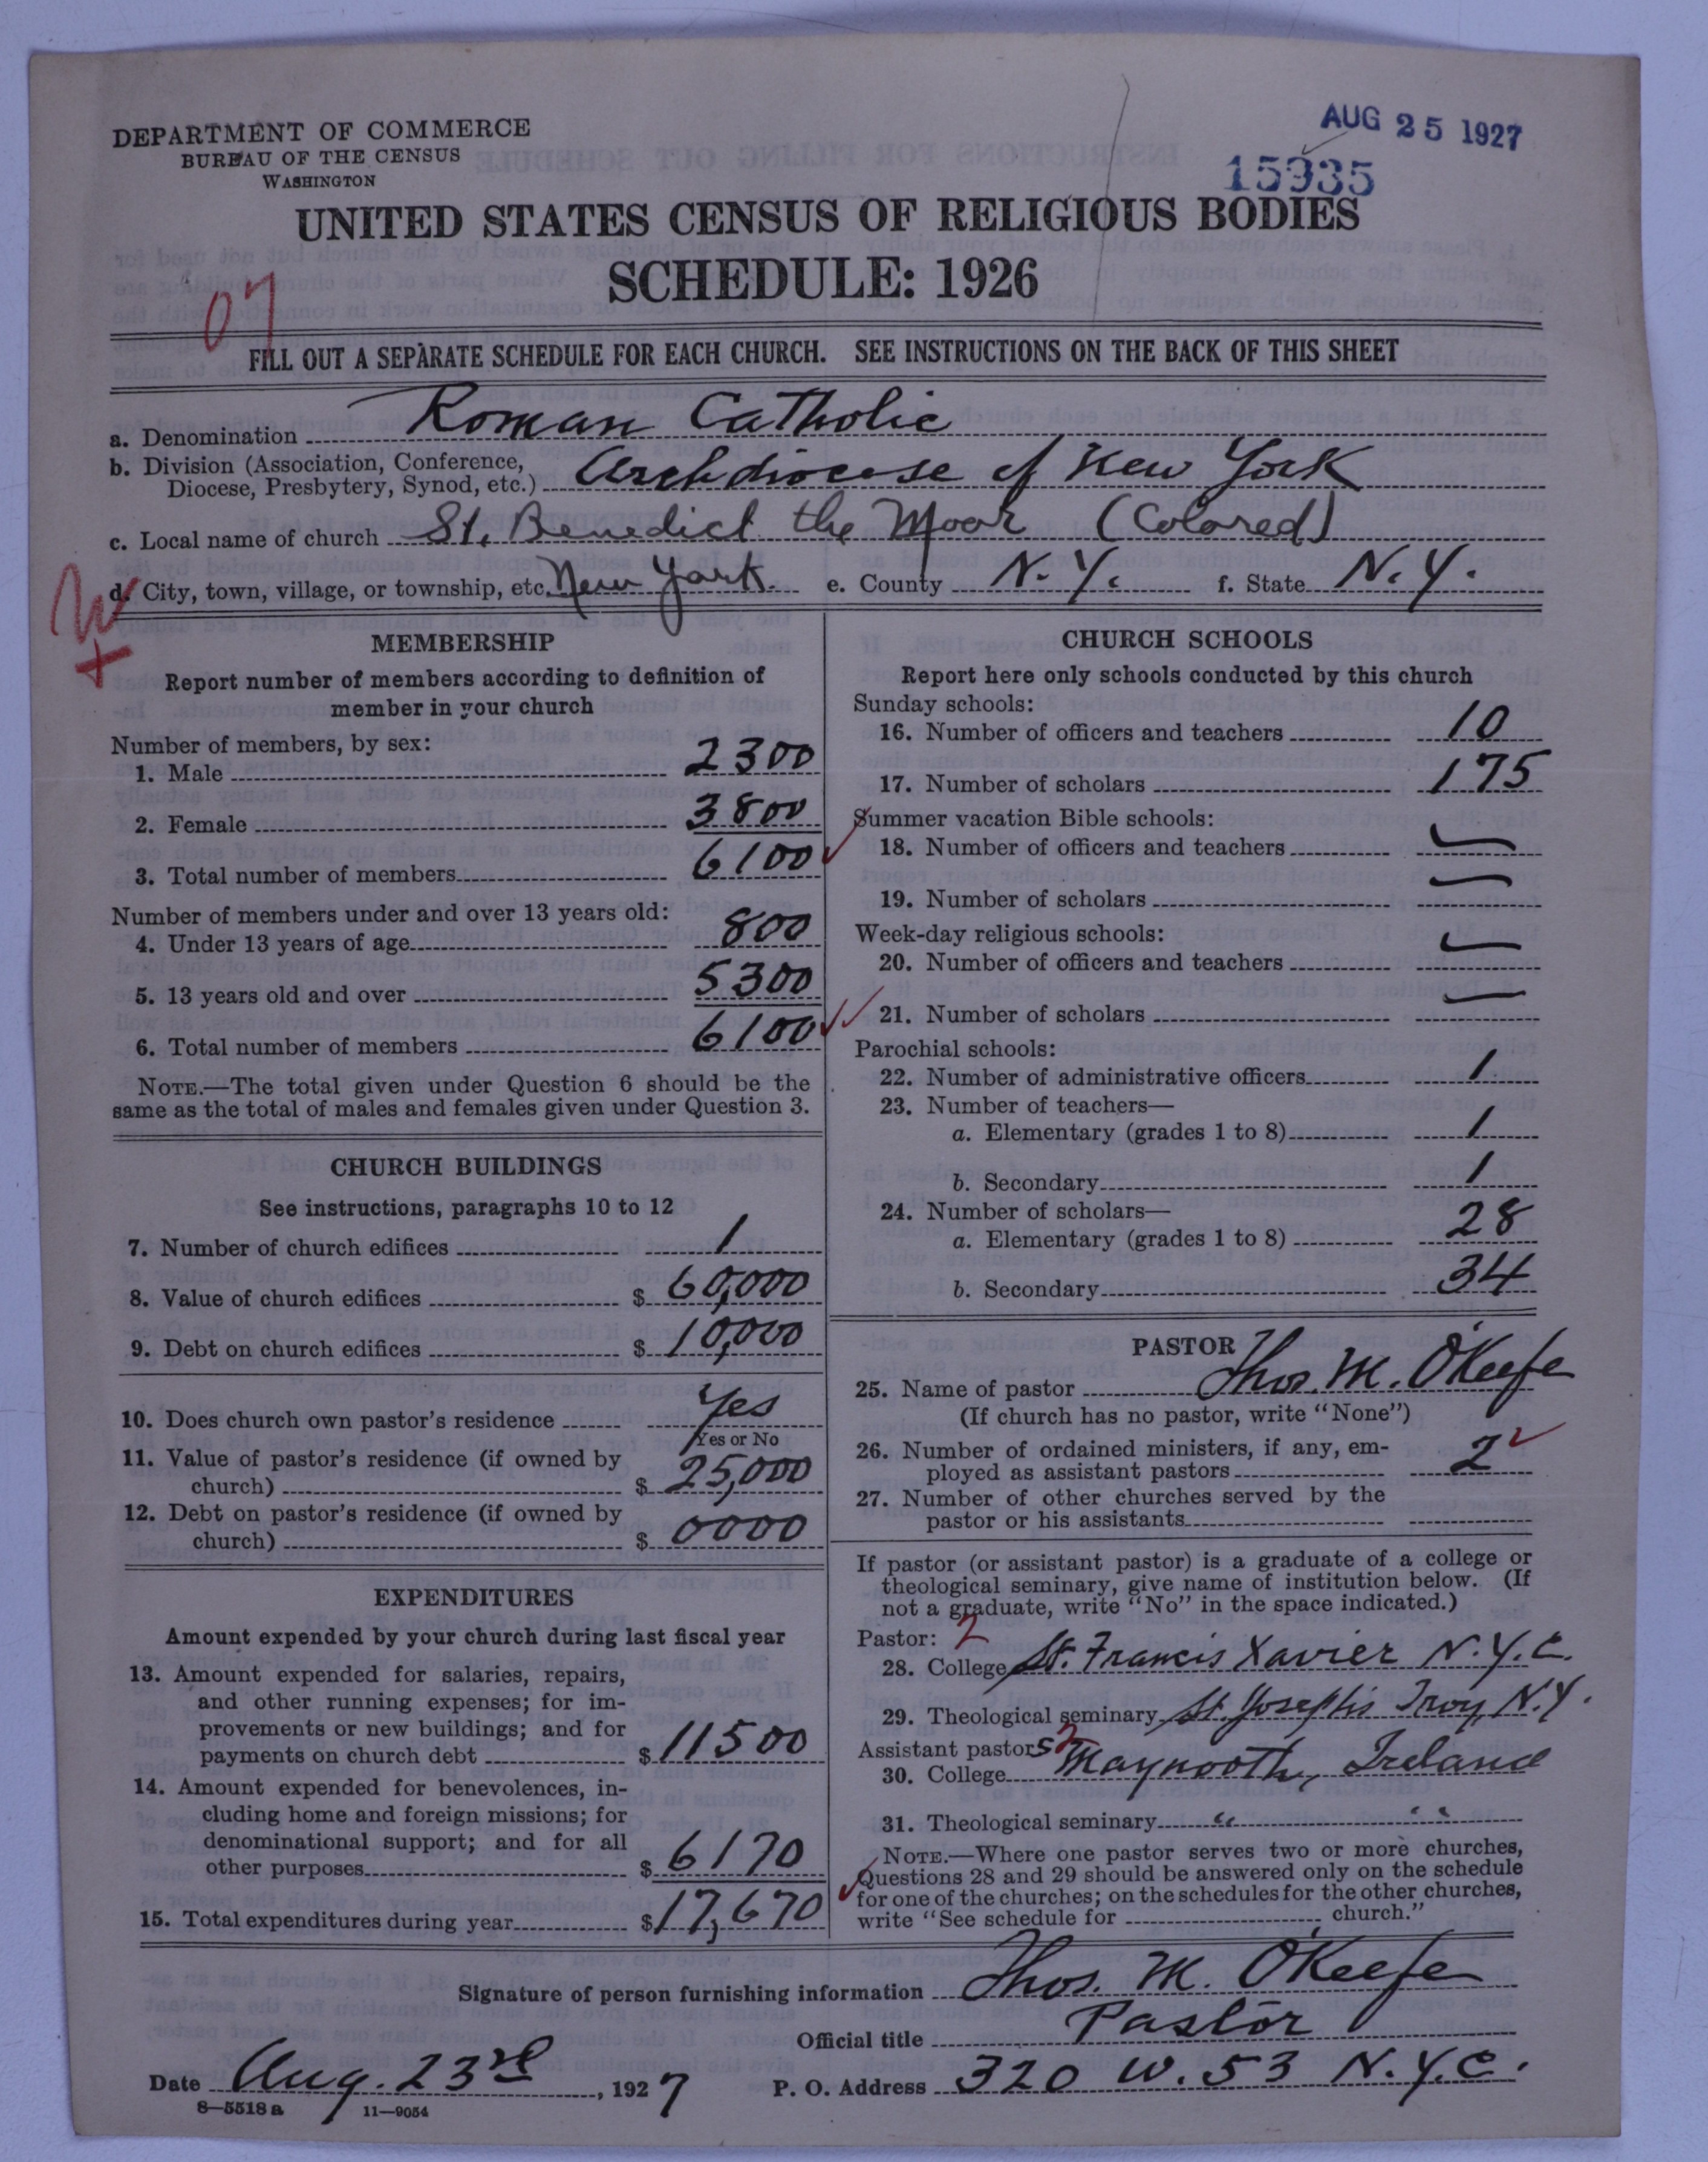 DEPARTMENT OF COMMERCE
BUREAU OF THE CENSUS
WASHINGTON
AUG 25 1927
15935
UNITED STATES CENSUS OF RELIGIOUS BODIES
SCHEDULE: 1926
07
FILL OUT A SEPARATE SCHEDULE FOR EACH CHURCH. SEE INSTRUCTIONS ON THE BACK OF THIS SHEET
a. Denomination Roman Catholic
b. Division (Association, Conference,
Diocese, Presbytery, Synod, etc.) Archdiocese of New York
c. Local name of church St. Benedict the Moor (Colored)
d. City, town, village, or township, etc. New York e. County N.Y. f. State N.Y.
W
+
MEMBERSHIP
Report number of members according to definition of
member in your church
Number of members, by sex:
1. Male 2300
2. Female 3800
3. Total number of members 6100
Number of members under and over 13 years old:
4. Under 13 years of age 800
5. 13 years old and over 5300
6. Total number of members 6100
NOTE.—The total given under Question 6 should be the
same as the total of males and females given under Question 3.
CHURCH BUILDINGS
See instructions, paragraphs 10 to 12
7. Number of church edifices 1
8. Value of church edifices $ 60,000
9. Debt on church edifices $ 10,000
10. Does church own pastor's residence Yes
Yes or No
11. Value of pastor's residence (if owned by
church) $ 25,000
12. Debt on pastor's residence (if owned by
church) $ 0000
EXPENDITURES
Amount expended by your church during last fiscal year
13. Amount expended for salaries, repairs,
and other running expenses; for im-
provements or new buildings; and for
payments on church debt $ 11500
14. Amount expended for benevolences, in-
cluding home and foreign missions; for
denominational support; and for all
other purposes $ 6170
15. Total expenditures during year $ 17,670
CHURCH SCHOOLS
Report here only schools conducted by this church
Sunday schools:
16. Number of officers and teachers 10
17. Number of scholars 175
Summer vacation Bible schools:
18. Number of officers and teachers —
19. Number of scholars —
Week-day religious schools:
20. Number of officers and teachers —
21. Number of scholars —
Parochial schools:
22. Number of administrative officers 1
23. Number of teachers—
a. Elementary (grades 1 to 8) 1
b. Secondary 1
24. Number of scholars—
a. Elementary (grades 1 to 8) 28
b. Secondary 34
PASTOR
25. Name of pastor Thos. M. O'Keefe
(If church has no pastor, write "None")
26. Number of ordained ministers, if any, em-
ployed as assistant pastors 2
27. Number of other churches served by the
pastor or his assistants
If pastor (or assistant pastor) is a graduate of a college or
theological seminary, give name of institution below. (If
not a graduate, write "No" in the space indicated.)
Pastor: 2
28. College St. Francis Xavier N.Y.C.
29. Theological seminary St. Joseph's Troy, N.Y.
Assistant pastors 2
30. College Maynooth, Ireland
31. Theological seminary " "
NOTE.—Where one pastor serves two or more churches,
Questions 28 and 29 should be answered only on the schedule
for one of the churches; on the schedules for the other churches,
write "See schedule for church."
Signature of person furnishing information Thos. M. O'Keefe
Official title Pastor
Date Aug. 23rd, 1927 P. O. Address 320 W. 53 N.Y.C.
8—5518 a 11—9054